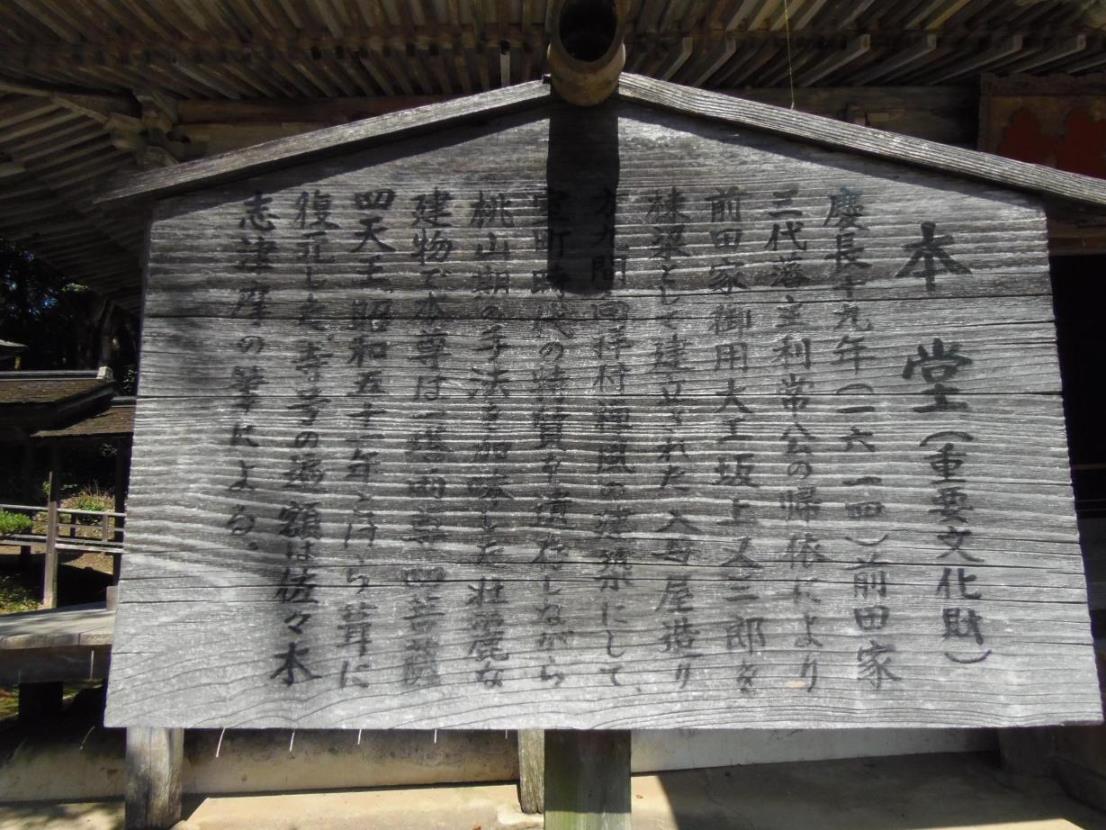 本堂（重要文化財）
慶長十九年（一六一四）前田家
三代藩主利常公の帰依により
前田家御用大工坂上又三郎を
棟梁として建立された入母屋造り
方九間向拝付禅風の建築にして、
室町時代の特質を遺存しながら
桃山期の手法を加味した壮麗な
建物で本尊は一塔両尊四菩薩
四天王、昭和五十一年こけら葺に
復元した。寺号の扁額は佐々木
志津摩の筆による。